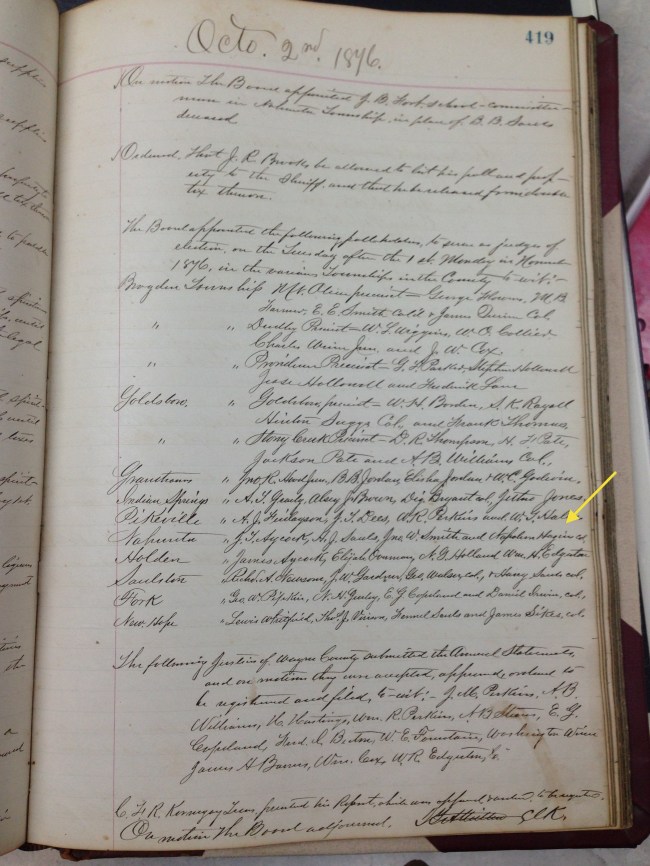 419
Octo. 2nd 1876.
On motion The Board appointed J. B. Fork school-committee-
man in Nahunta Township, in place of B. B. Sauls
deceased
Ordered, That J. R. Brooks be allowed to list his poll and prop-
erty to the Sheriff, and that he be released from double
tax thereon.
The Board appointed the following pollholders, to serve as judges of
election, on the Tuesday after the 1st Monday in Novemr
1876, in the various Townships in the County to wit:-
Brogden Township Mt. Olive precinct - George Flowers, M. B.
Farmer, E. E. Smith Col'd & James Durin Col.
" " Dudley Precinct - W. F. Wiggins, W. O. Collier
Charles Winn Jun, and J. W. Cox
" " Providence Precinct - G. T. Parker, Stephen Hollowell
Jesse Hollowell and Fredrick Lane
Goldsboro. " Goldsboro precinct - W. H. Borden, S. K. Rayoll
Hinton Suggs Col. and Frank Thomas
" " Stony Creek Precinct - D. R. Thompson, H. F. Pate,
Jackson Pate and A. B. Williams Col,
Granthams " Jno. R. Hood Jun, B. B. Jordan, Elisha Jordan & W. C. Godwin,
Indian Springs " A. T. Grady, Alsey J. Brown, Bryant col, Jones
Pikeville " A. J. Finlayson, G. T. Dees, W. R. Perkins and W. T.
Nahunta " J. T. Aycock, H. J. Sauls, Jno. W. Smith and Napoleon Hagin co.
Holden " James Aycock, Elijah Dennom, N. G. Holland Wm. H. Edgerton
Saulston " Richd. A. Newsome, J. W. Gardner, Geo. col, & Haney Sauls col.
Fork " Geo. W. Pipkin, N. H. Gurley, E. G. Copeland and Daniel Irwin, col,
New Hope " Lewis Whitfield, Thos. J. Sauls and James Sikes, col.
The following Justices of Wayne County submitted the Annual Statements,
and on motion they were accepted, approved, ordered to
be registered and filed, to-wit:- G. M. Perkins, A. B.
Williams, H. Hastings, Wm. R. Perkins, A B E. G.
Copeland, W. E. Fountain, Washington Winn
James H Barnes, Wm. Cox, W. R. Edgerton,
C. F. R. Kornegay Treas, presented his Report, which was approved & ordered to be registd.
On motion The Board adjourned. Clk.